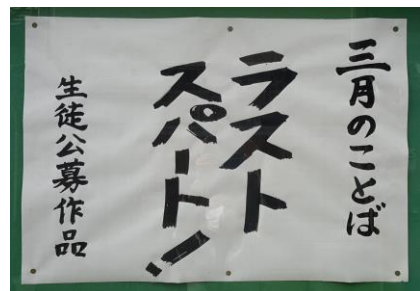 三月のことば
ラスト
スパート!
生徒公募作品